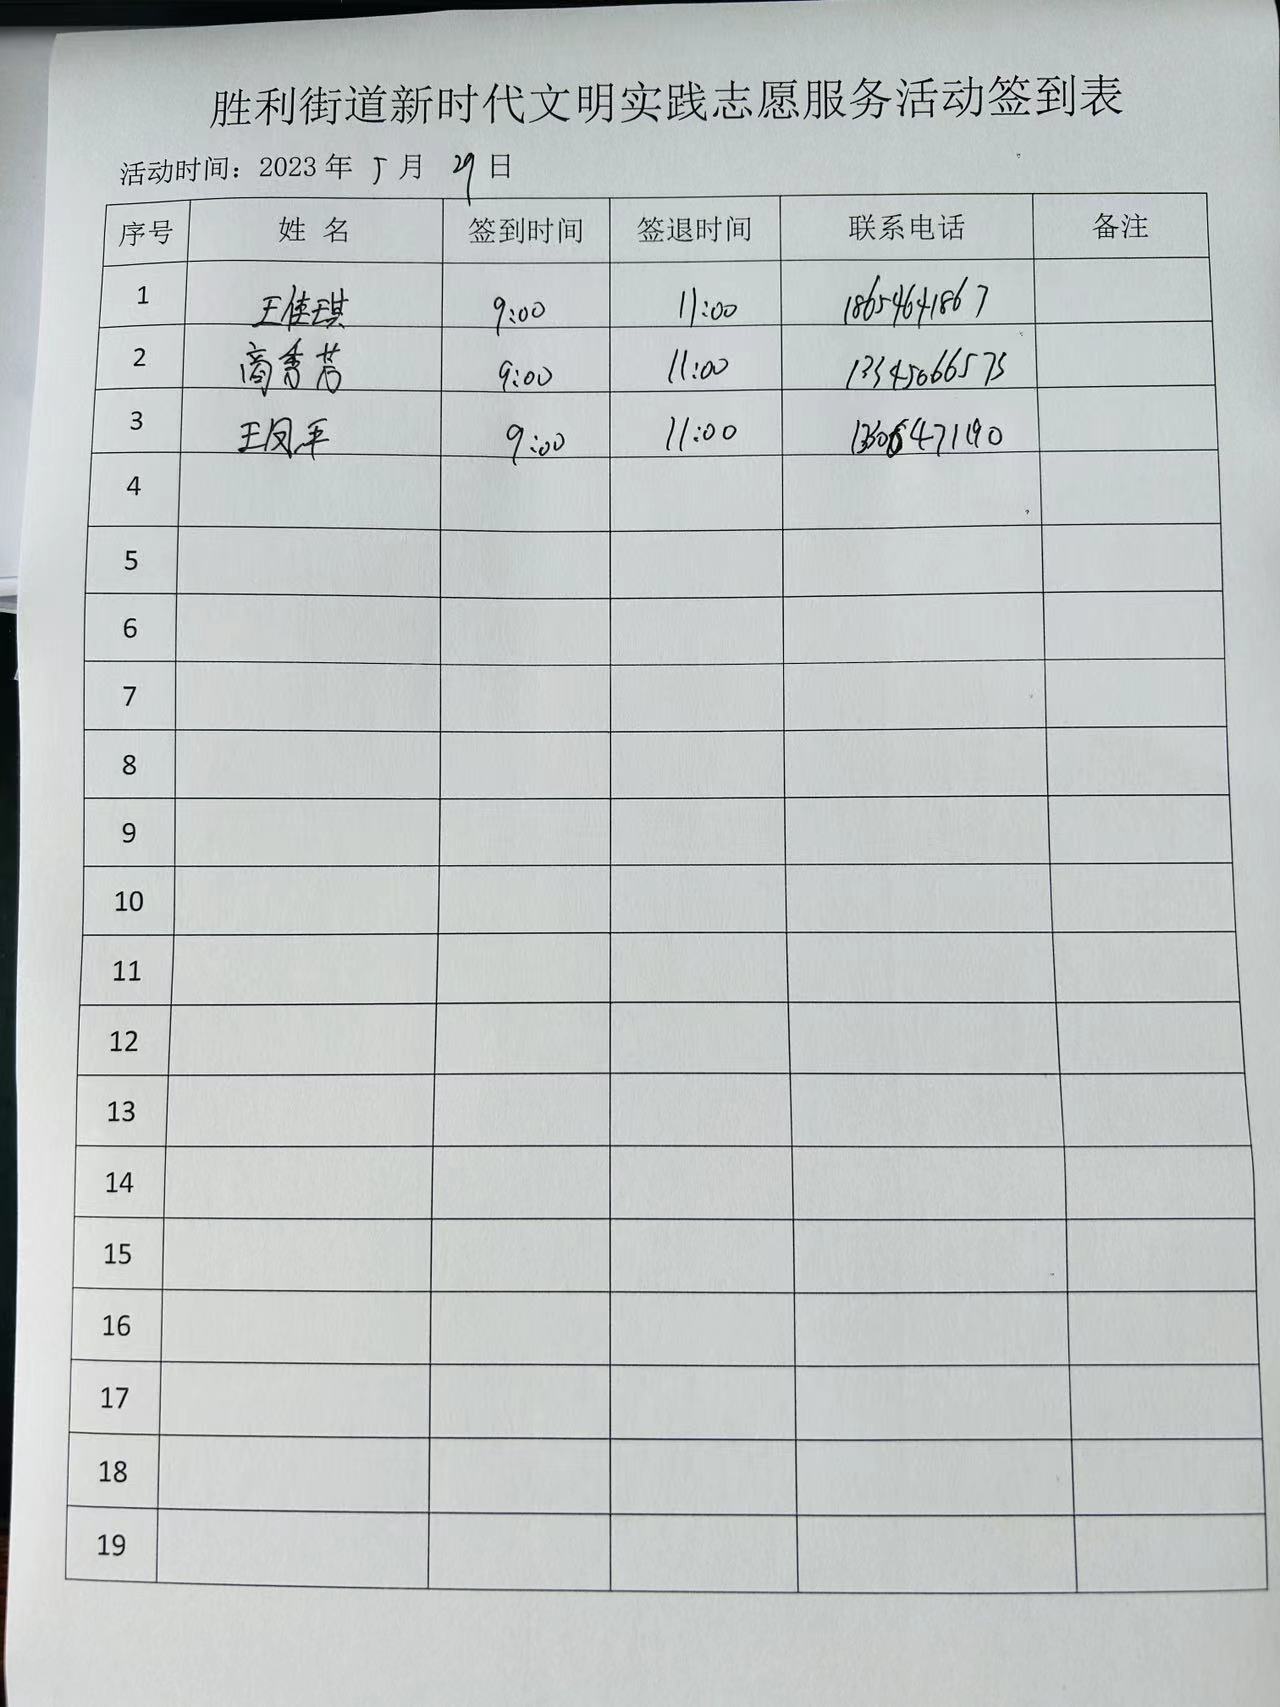 胜利街道新时代文明实践志愿服务活动签到表
活动时间：2023 年 5 月 29 日
序号 姓 名 签到时间 签退时间 联系电话 备注
1 王佳琪 9:00 11:00 18654641867
2 商秀芳 9:00 11:00 13345066575
3 王凤平 9:00 11:00
4
5
6
7
8
9
10
11
12
13
14
15
16
17
18
19